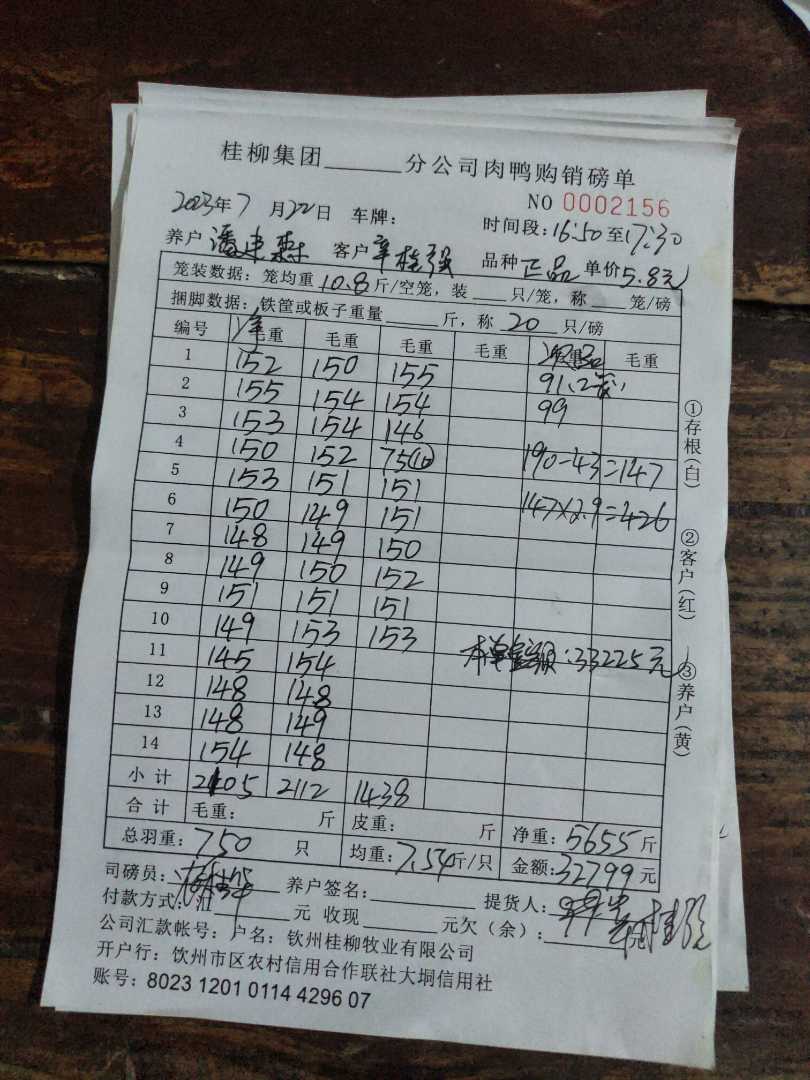 桂柳集团______分公司肉鸭购销磅单
NO 0002156
2023年7月22日 车牌: 时间段:16:50至17:30
养户 潘 客户 辛桂强 品种 正品 单价5.8元
笼装数据: 笼均重10.8斤/空笼,装___只/笼,称___笼/磅
捆脚数据: 铁筐或板子重量_____斤,称20只/磅
编号 毛重 毛重 毛重 毛重 毛重
1 152 150 155 91.2
2 155 154 154 99
3 153 154 146
4 150 152 75(10) 190-43=147
5 153 151 151
6 150 149 151 147×2.9=426
7 148 149 150
8 149 150 152
9 151 151 151
10 149 153 153
11 145 154 本单金额:33225元
12 148 148
13 148 149
14 154 148
小计 2105 2112 1438
合计 毛重: 斤 皮重: 斤 净重:5655斤
总羽重:750只 均重:7.54斤/只 金额:32799元
司磅员: 养户签名: 提货人:
付款方式:汇______元 收现______元欠(余):______元
公司汇款帐号: 户名: 钦州桂柳牧业有限公司
开户行: 饮州市区农村信用合作联社大垌信用社
账号: 8023 1201 0114 4296 07
①存根(白)
②客户(红)
③养户(黄)